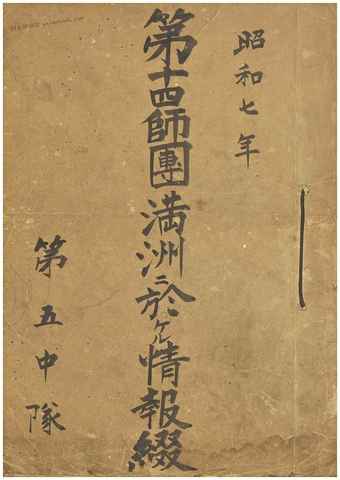 昭和七年
第十四師團満洲ニ於ケル情報綴
第五中隊